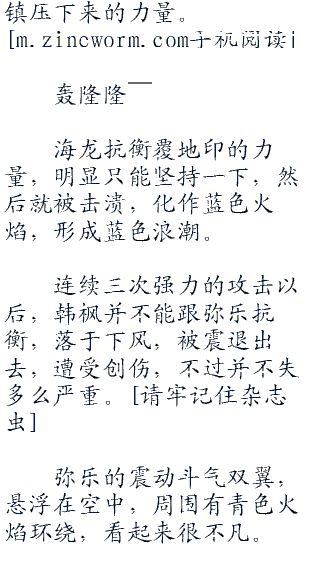 镇压下来的力量。
[m.zincworm.com手机阅读]
轰隆隆——
海龙抗衡覆地印的力
量，明显只能坚持一下，然
后就被击溃，化作蓝色火
焰，形成蓝色浪潮。
连续三次强力的攻击以
后，韩枫并不能跟弥乐抗
衡，落于下风，被震退出
去，遭受创伤，不过并不失
多么严重。[请牢记住杂志
虫]
弥乐的震动斗气双翼，
悬浮在空中，周围有青色火
焰环绕，看起来很不凡。